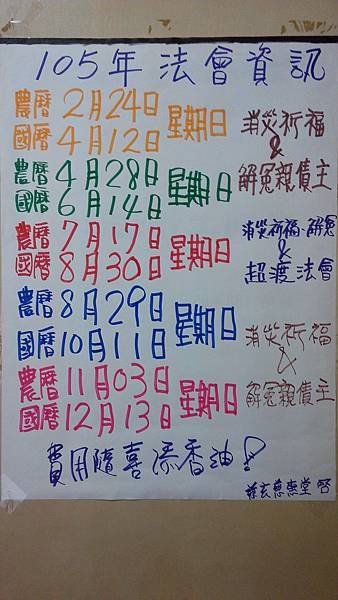 105年法會資訊
農曆2月24日 星期日
國曆4月12日
消災祈福
&
解冤親債主
農曆4月28日 星期日
國曆6月14日
農曆7月17日 星期日
國曆8月30日
消災祈福、解冤
&
超渡法會
農曆8月29日 星期日
國曆10月11日
消災祈福
&
解冤親債主
農曆11月03日 星期日
國曆12月13日
費用隨喜添香油!
慈惠堂 啓